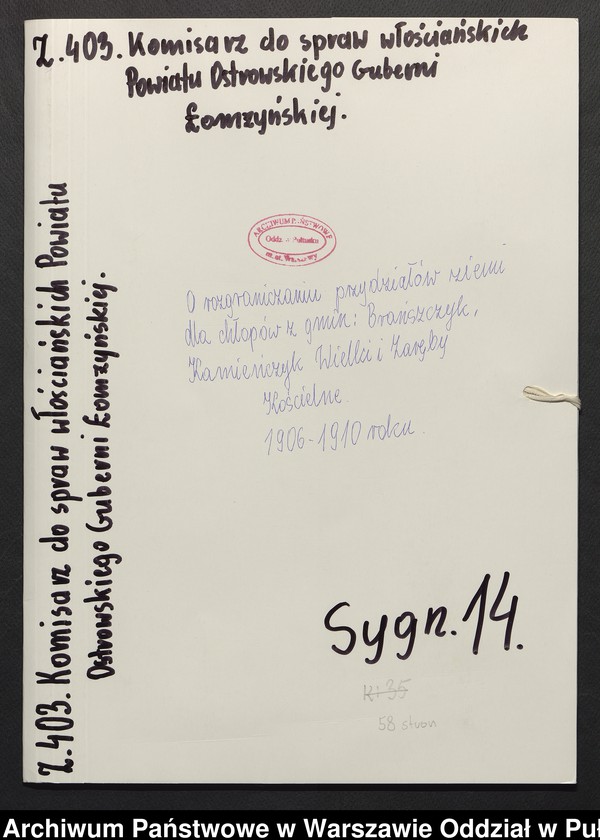 Z. 403. Komisarz do spraw włościańskich
Powiatu Ostrowskiego Guberni
Łomżyńskiej.
Z. 403. Komisarz do spraw włościańskich Powiatu
Ostrowskiego Guberni Łomżyńskiej.
ARCHIWUM PAŃSTWOWE
Oddz. w Pułtusku
m.st. Warszawy
O rozgraniczaniu przydziałów ziemi
dla chłopów z gmin: Brańszczyk,
Kamieńczyk Wielki i Zaręby
Kościelne.
1906-1910 roku.
Sygn. 14.
Ki 35
58 stron
Archiwum Państwowe w Warszawie Oddział w Puł